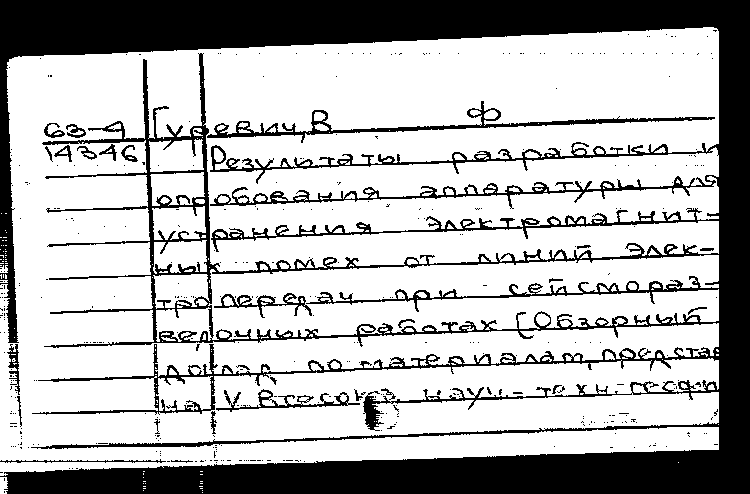 63-4 Гуревич, В ф
14346. Результаты разработки и
опробования аппаратуры для
устранения электромагнит-
ных помех от линий элек-
тропередач при сейсмораз-
ведочных работах [Обзорный
доклад по материалам, представ
на V Всесоюз науч-техн. геофи